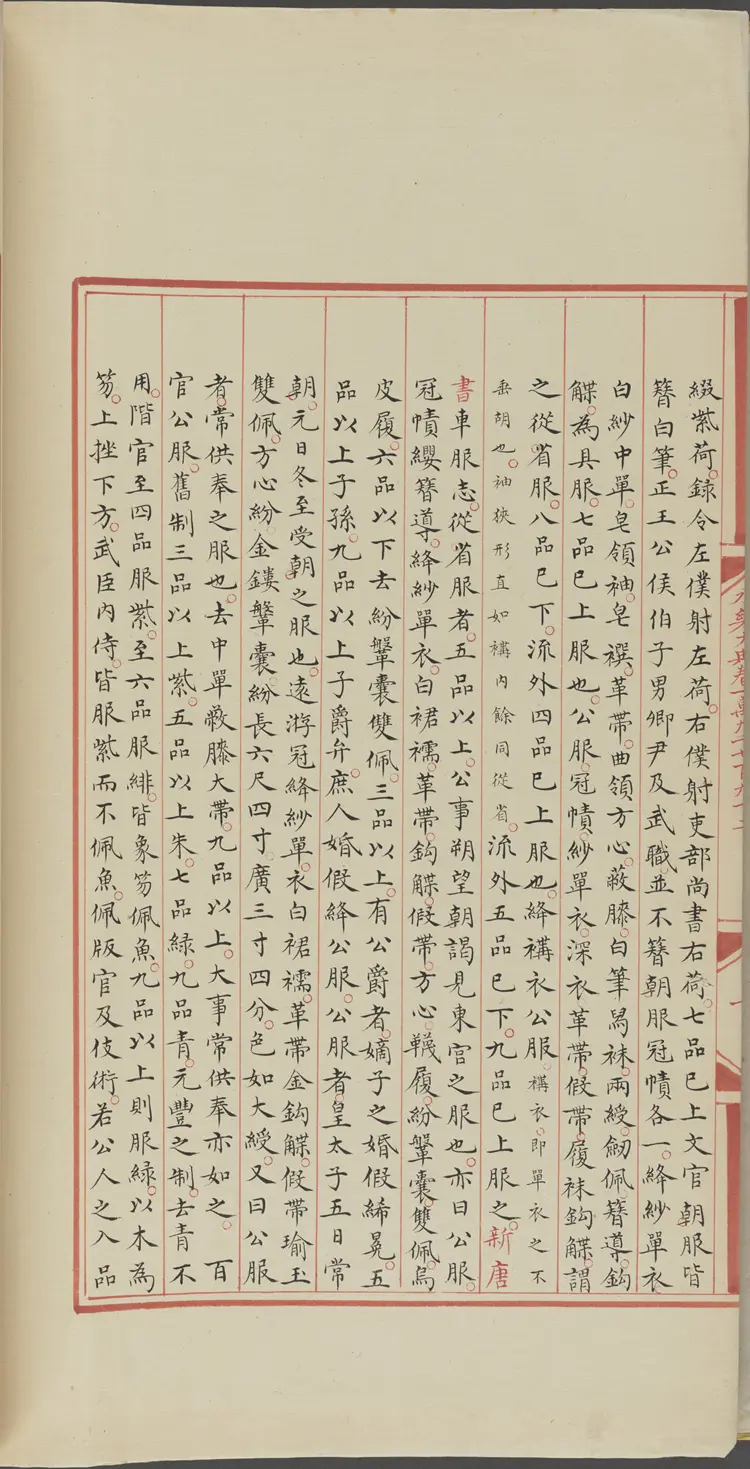 綴紫荷。録令左僕射左荷。右僕射吏部尚書右荷。七品已上文官朝服皆
簪白筆。正王公侯伯子男卿尹及武職並不簪朝服冠幘各一。絳紗單衣
白紗中單。皂領袖。皂襈。革帶。曲領方心。蔽膝。白筆舄袜。兩綬。劒佩。簪導。鈎
䚢。為具服。七品已上服也。公服。冠幘。紗單衣。深衣革帶。假帶。履袜鈎䚢。謂
之從省服。八品已下。流外四品已上服也。絳褠衣公服。褠衣。即單衣之不
垂胡也。袖狹形直如褠内餘同從省。流外五品已下。九品已上服之。新唐
書車服志。從省服者。五品以上。公事朔望朝謁見東宫之服也。亦曰公服。
冠幘纓簪導。絳紗單衣。白裙襦。革帶。鈎䚢。假帶。方心韈履。紛鞶囊。雙佩。烏
皮履。六品以下去紛鞶囊雙佩。三品以上。有公爵者。嫡子之婚假絺冕。五
品以上子孫。九品以上子爵弁。庶人婚假絳公服。公服者。皇太子五日常
朝。元日冬至受朝之服也。遠游冠絳紗單。衣白裙襦。革帶金鈎䚢。假帶瑜玉
雙佩。方心紛。金鏤鞶囊。紛長六尺四寸。廣三寸四分。色如大綬。又曰公服
者。常供奉之服也。去中單蔽膝大帶。九品以上。大事常供奉亦如之。 百
官公服。舊制三品以上紫。五品以上朱。七品緑。九品青。元豐之制。去青不
用。階官至四品服紫。至六品服緋。皆象笏佩魚。九品以上則服緑。以木為
笏。上挫下方。武臣内侍。皆服紫而不佩魚。佩版官及伎術。若公人之入品